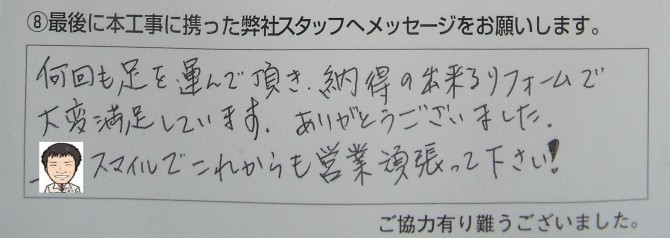 ⑧最後に本工事に携った弊社スタッフへメッセージをお願いします。
何回も足を運んで頂き、納得の出来るリフォームで
大変満足しています。ありがとうございました。
スマイルでこれからも営業頑張って下さい!
ご協力有り難うございました。